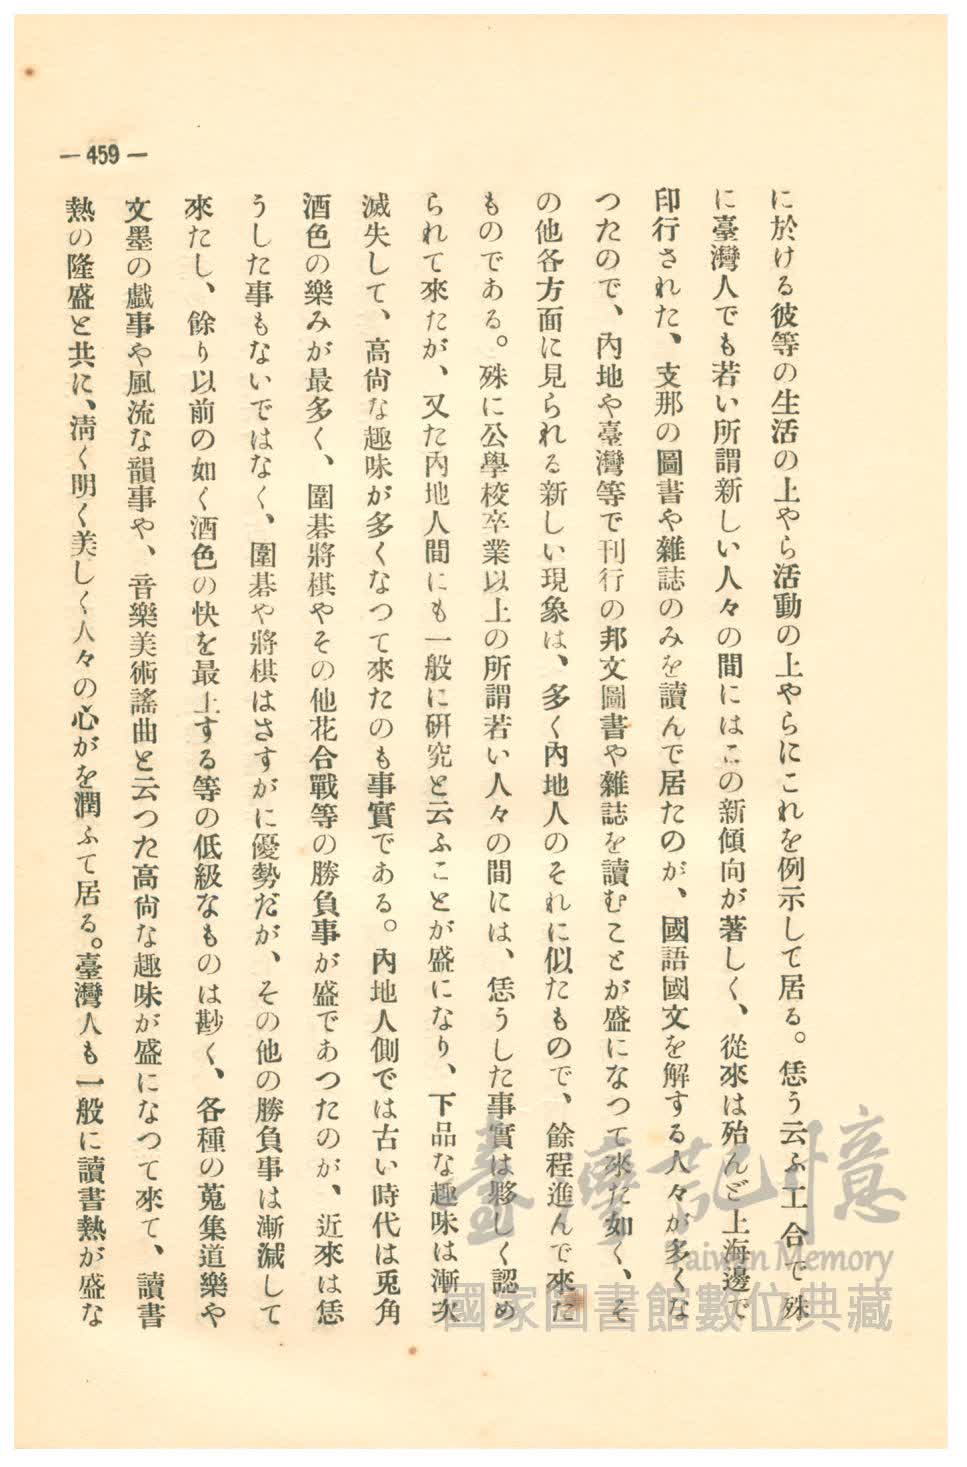 — 459 —
に於ける彼等の生活の上やら活動の上やらにこれを例示して居る。恁う云ふ工合で殊
に臺灣人でも若い所謂新しい人々の間にはこの新傾向が著しく、從來は殆んど上海邊で
印行された、支那の圖書や雜誌のみを讀んで居たのが、國語國文を解する人々が多くな
つたので、內地や臺灣等で刊行の邦文圖書や雜誌を讀むことが盛になつて來た如く、そ
の他各方面に見られる新しい現象は、多く內地人のそれに似たもので、餘程進んで來た
ものである。殊に公學校卒業以上の所謂若い人々の間には、恁うした事實は夥しく認め
られて來たが、又た內地人間にも一般に硏究と云ふことが盛になり、下品な趣味は漸次
滅失して、高尙な趣味が多くなつて來たのも事實である。內地人側では古い時代は兎角
酒色の樂みが最多く、圍碁將棋やその他花合戰等の勝負事が盛であつたのが、近來は恁
うした事もないではなく、圍碁や將棋はさすがに優勢だが、その他の勝負事は漸減して
來たし、餘り以前の如く酒色の快を最上する等の低級なものは尠く、各種の蒐集道樂や
文墨の戲事や風流な韻事や、音樂美術謠曲と云つた高尙な趣味が盛になつて來て、讀書
熱の隆盛と共に、淸く明く美しく人々の心がを潤ふて居る。臺灣人も一般に讀書熱が盛な
臺灣記憶
Taiwan Memory
國家圖書館數位典藏